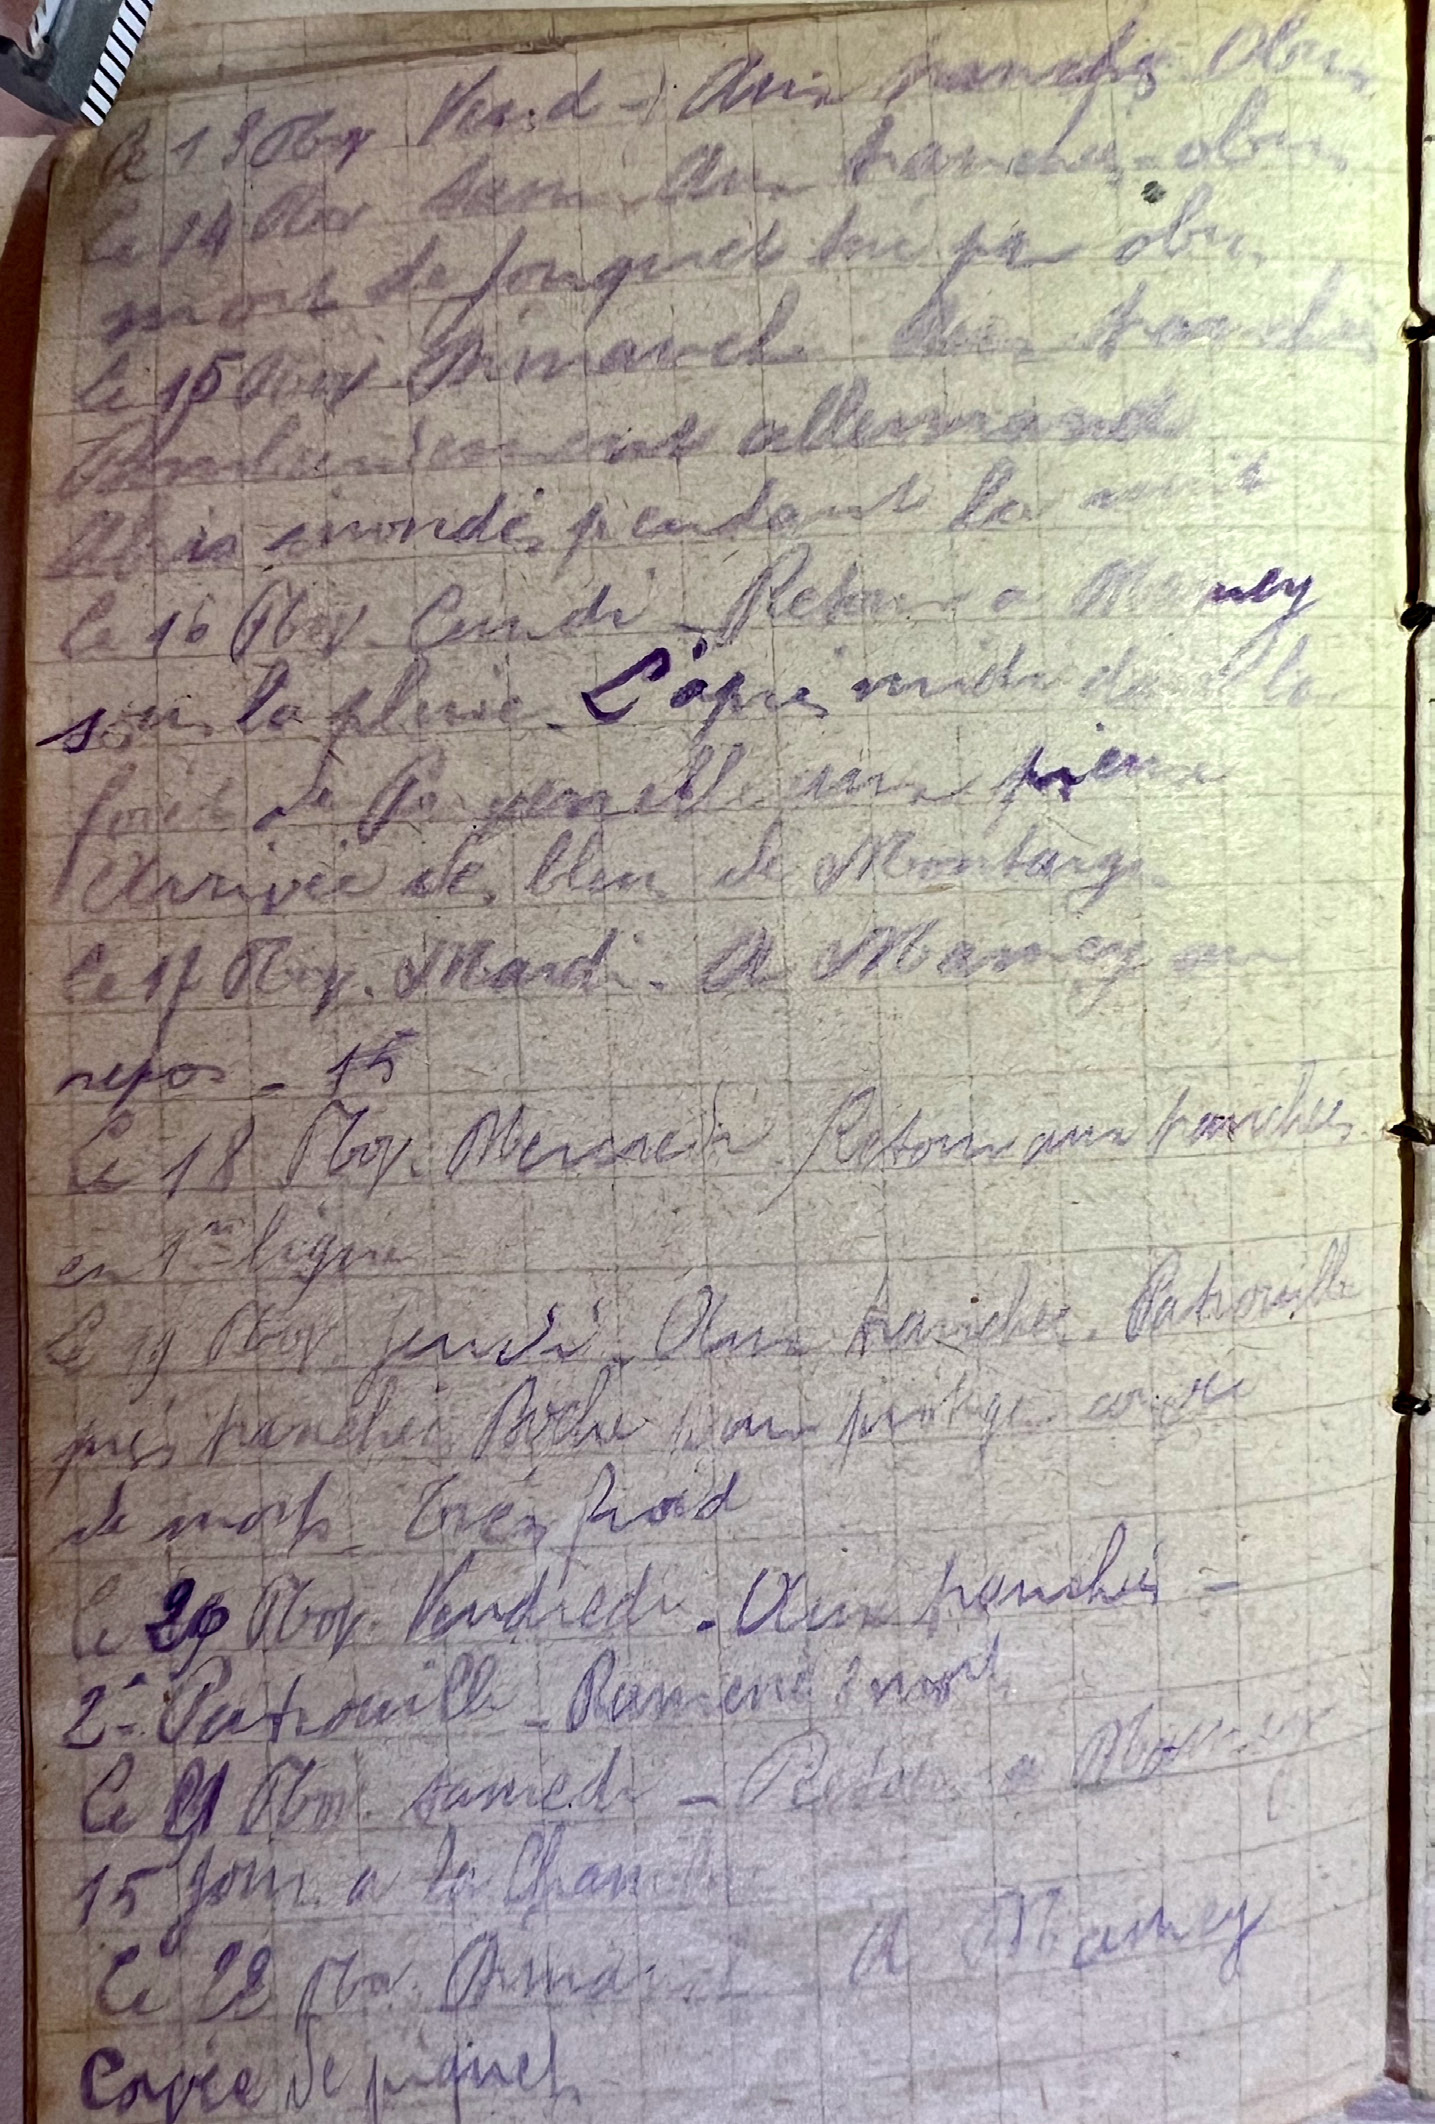 Le 13 Nov Vend - Aux tranchées Obus
Le 14 Nov Sam. Aux tranchées - obus
mort de fouquet tué par obus
Le 15 Nov Dimanche Aux tranchées
Bombardement allemand
Abris inondés pendant la nuit
Le 16 Nov. Lundi - Retour a Mamey
sous la pluie - L'après midi dans la
forêt de aux pieux
Arrivée des bleus de Montargis
Le 17 Nov. Mardi. A Mamey au
repos - 15
Le 18 Nov. Mercredi Retour aux tranchées
en 1re ligne
Le 19 Nov. Jeudi. Aux tranchées. Patrouille
près tranchées Boche pour protéger corvée
de morts. Très froid
Le 20 Nov. Vendredi. Aux tranchées -
2e Patrouille - Ramené 2 morts
Le 21 Nov. Samedi - Retour a Mamey
15 jours a la
Le 22 Nov. Dimanche A Mamey
Corvée de piquets